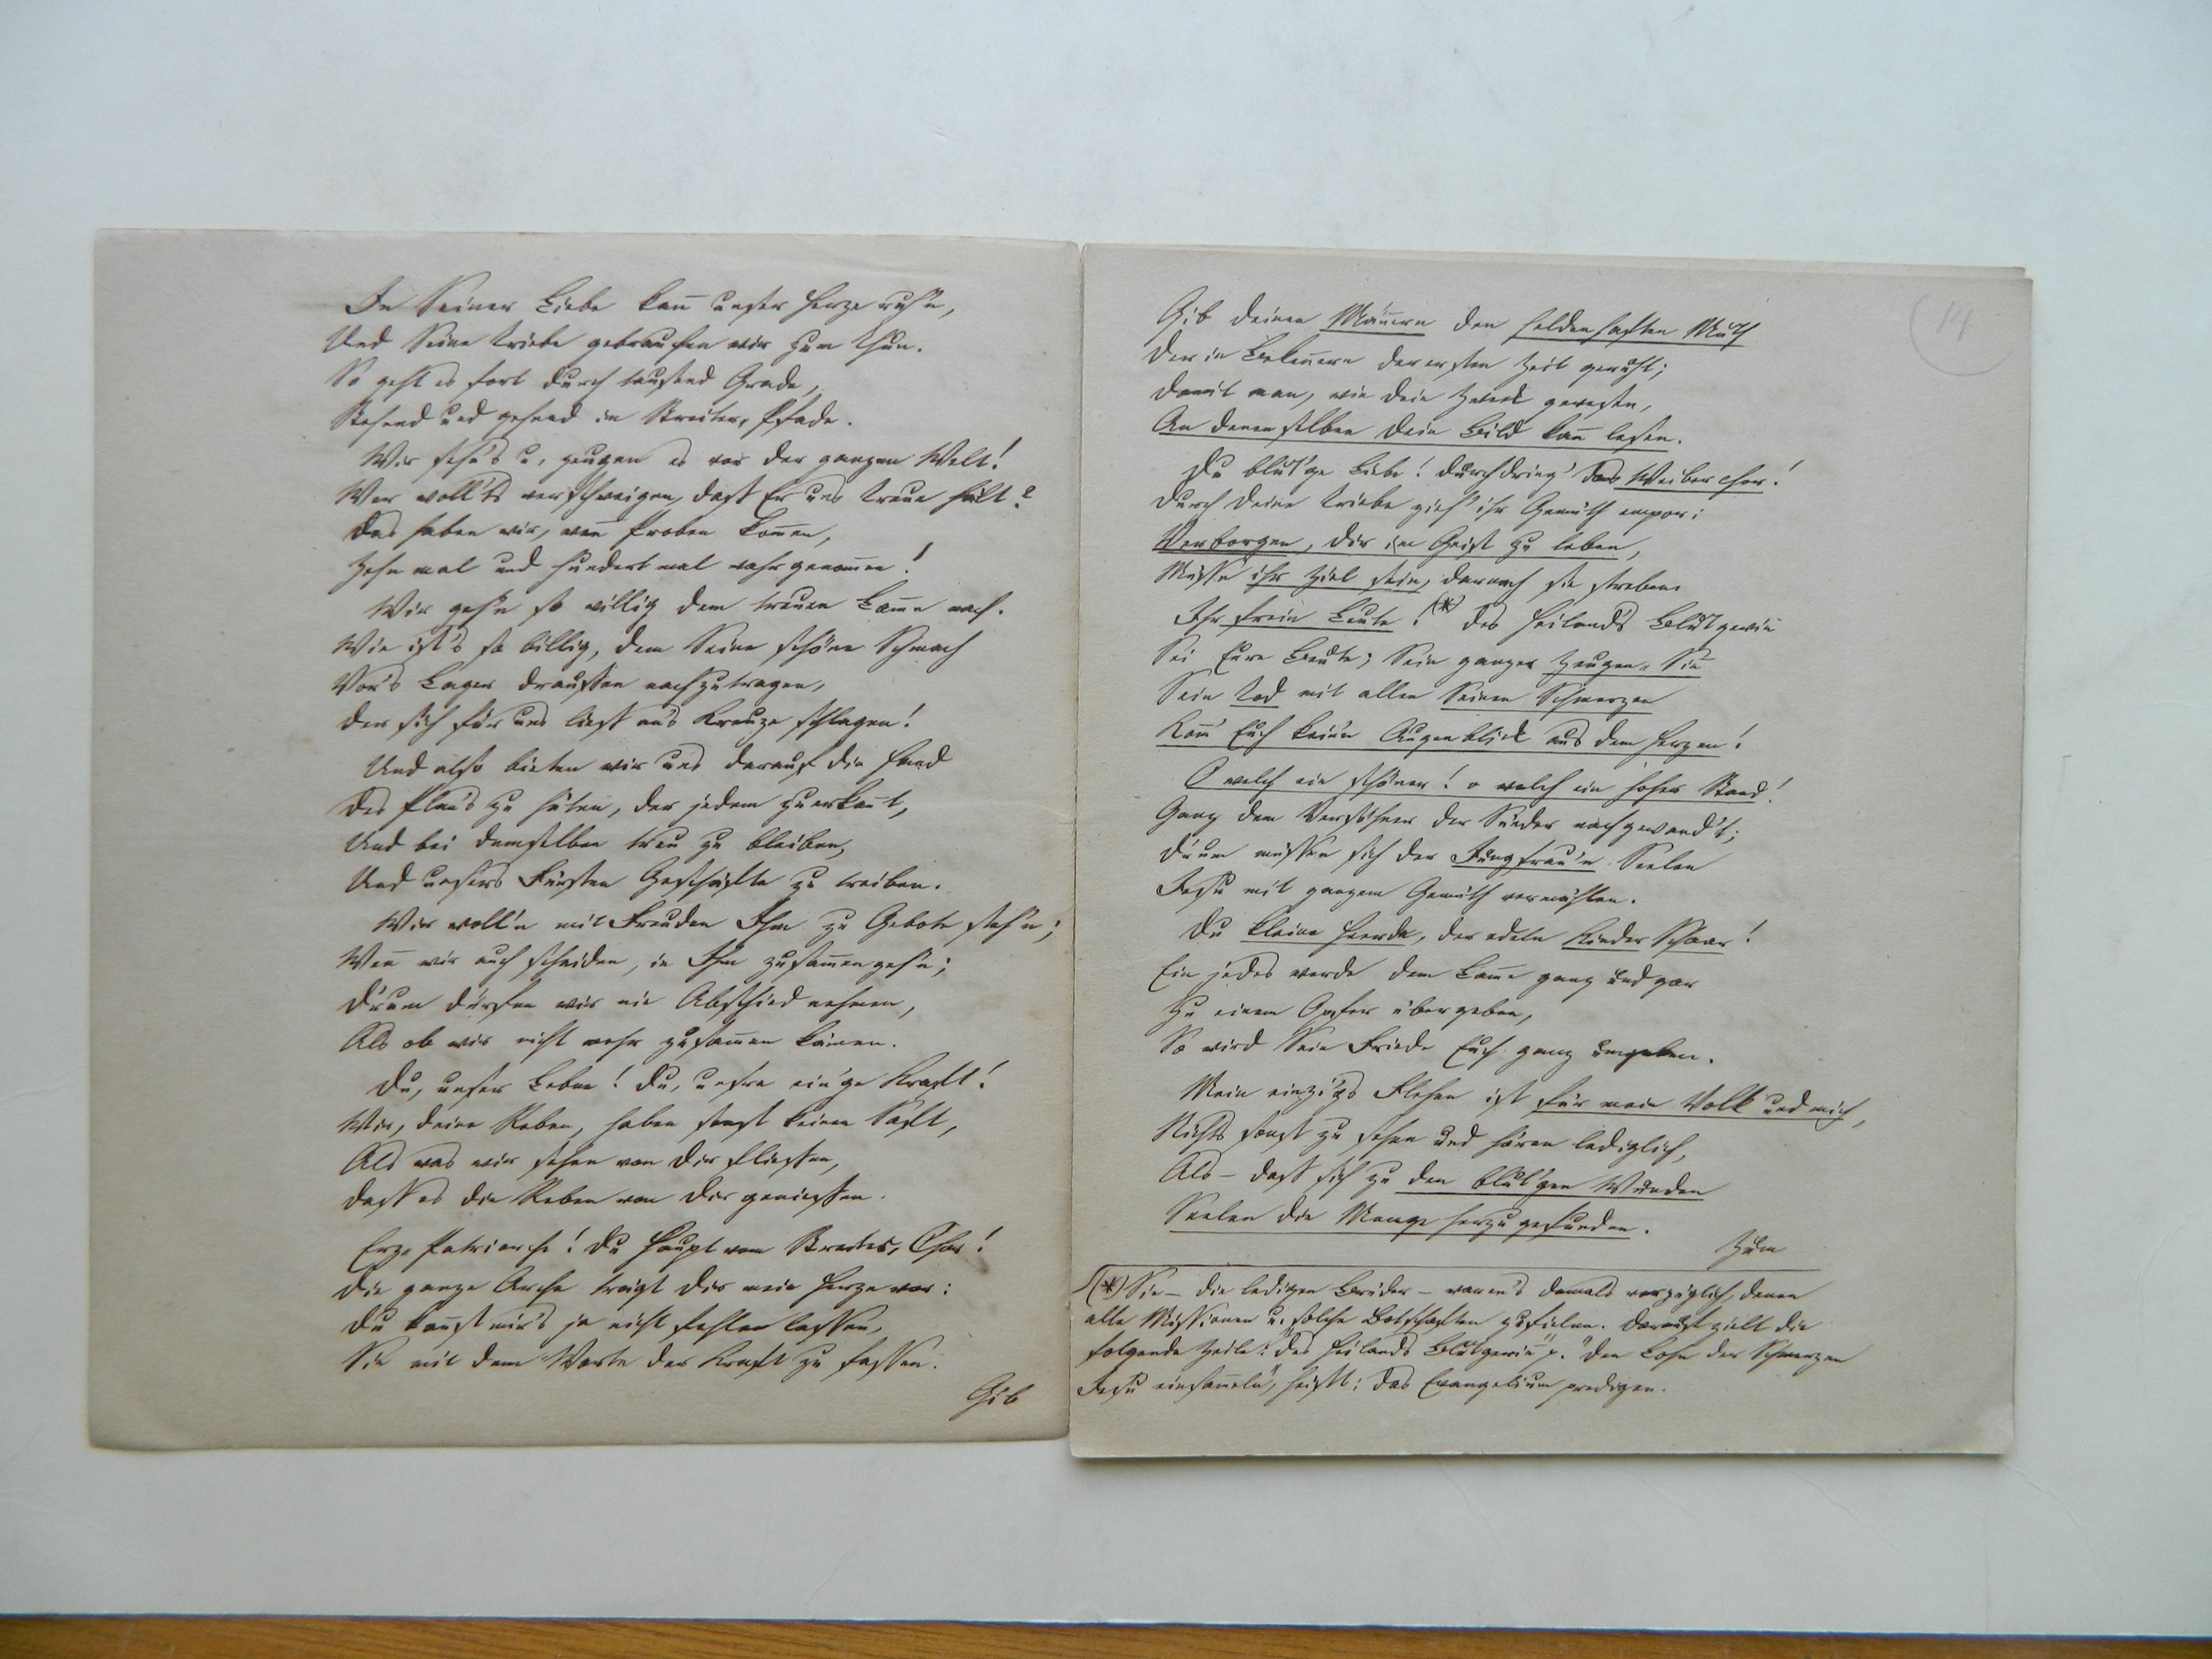 In Seiner Liebe kañ unser Herze ruh'n,
Und Seine Triebe gebrauchen wir zum Thun.
So geht es fort durch tausend Grade,
Stehend und gehend im Streiter-Pfade.
Wir seh'n's u. zeugen es vor der ganzen Welt!
Wer woll'ts verschweigen, daß Er uns Treue hält?
Das haben wir, weñ Proben kom̃en,
Zehn mal und hundert mal wahrgenom̃en!
Wir geh'n so willig dem treuen Lam̃e nach.
Wie ist's so billig, dem Seine schöne Schmach
Vor's Lager draußen nachzutragen,
Der sich für uns ließ an's Kreuze schlagen!
Und also bieten wir uns darauf die Hand
Des Plan's zu hüten, der jedem zuerkañt,
Und bei demselben treu zu bleiben,
Und unsers Fürsten Geschäfte zu treiben.
Wir woll'n mit Freuden Ihm zu Gebote steh'n;
Weñ wir auch scheiden, in Ihm zusam̃engeh'n;
D'rum dürfen wir nie Abschied nehmen,
Als ob wir nicht mehr zusam̃en kämen.
Du, unser Leben! Du, unsre ein'ge Kraft!
Wir, deine Reben, haben sonst keinen Saft,
Als was wir sehen von Dir fließen,
Daß es die Reben von Dir genießen.
Erz-Patriarche! Du Haupt vom Streiter-Chor!
Die ganze Arche trägt Dir mein Herze vor:
Du kañst mir's ja nicht fehlen lassen,
Sie mit dem Worte der Kraft zu fassen.
Gib
14
Gib deinen Mäñern den heldenhaften Muth
Der in Bekeñern der ersten Zeit geruht;
Damit man, wie dein Zweck gewesen,
An denenselben Dein Bild kañ lesen.
Du blut'ge Liebe! durchdring' das Weiberchor!
Durch Deine Triebe zieh' ihr Gemüth empor:
Verborgen, Dir im Geist zu leben,
Müsse ihr Ziel sein, darnach sie streben.
Ihr frein Leute! (*) des Heilands Blutgewiñ
Sei Eure Beute; Sein ganzer Zeugen-Siñ
Sein Tod mit allen Seinen Schmerzen
Kom̃' Euch kein'n Augenblick aus dem Herzen!
O welch ein schöner! o welch ein hoher Stand!
Ganz dem Versöhner der Sünder nachgewand't;
D'rum müssen sich der Jungfrau'n Seelen
Jesu mit ganzem Gemüth vermählen.
Du kleine Heerde, der edeln Kinder Schaar!
Ein jedes werde dem Lam̃e ganz und gar
Zu einem Opfer übergeben,
So wird Sein Friede Euch ganz umgeben.
Mein einzi'gs Flehen ist für mein Volk und mich,
Nichts sonst zu sehen und hören lediglich,
Als - daß sich zu den blut'gen Wunden
Seelen die Menge herzugefunden.
Zum
(*) Sie - die ledigen Brüder - waren's damals vorzüglich, denen
alle Missionen u. solche Botschaften zufielen. Darauf zielt die
folgende Zeile: "des Heilands Blutgewiñ" p. "Den Lohn der Schmerzen
Jesu einsam̃eln", heißt: das Evangelium predigen.